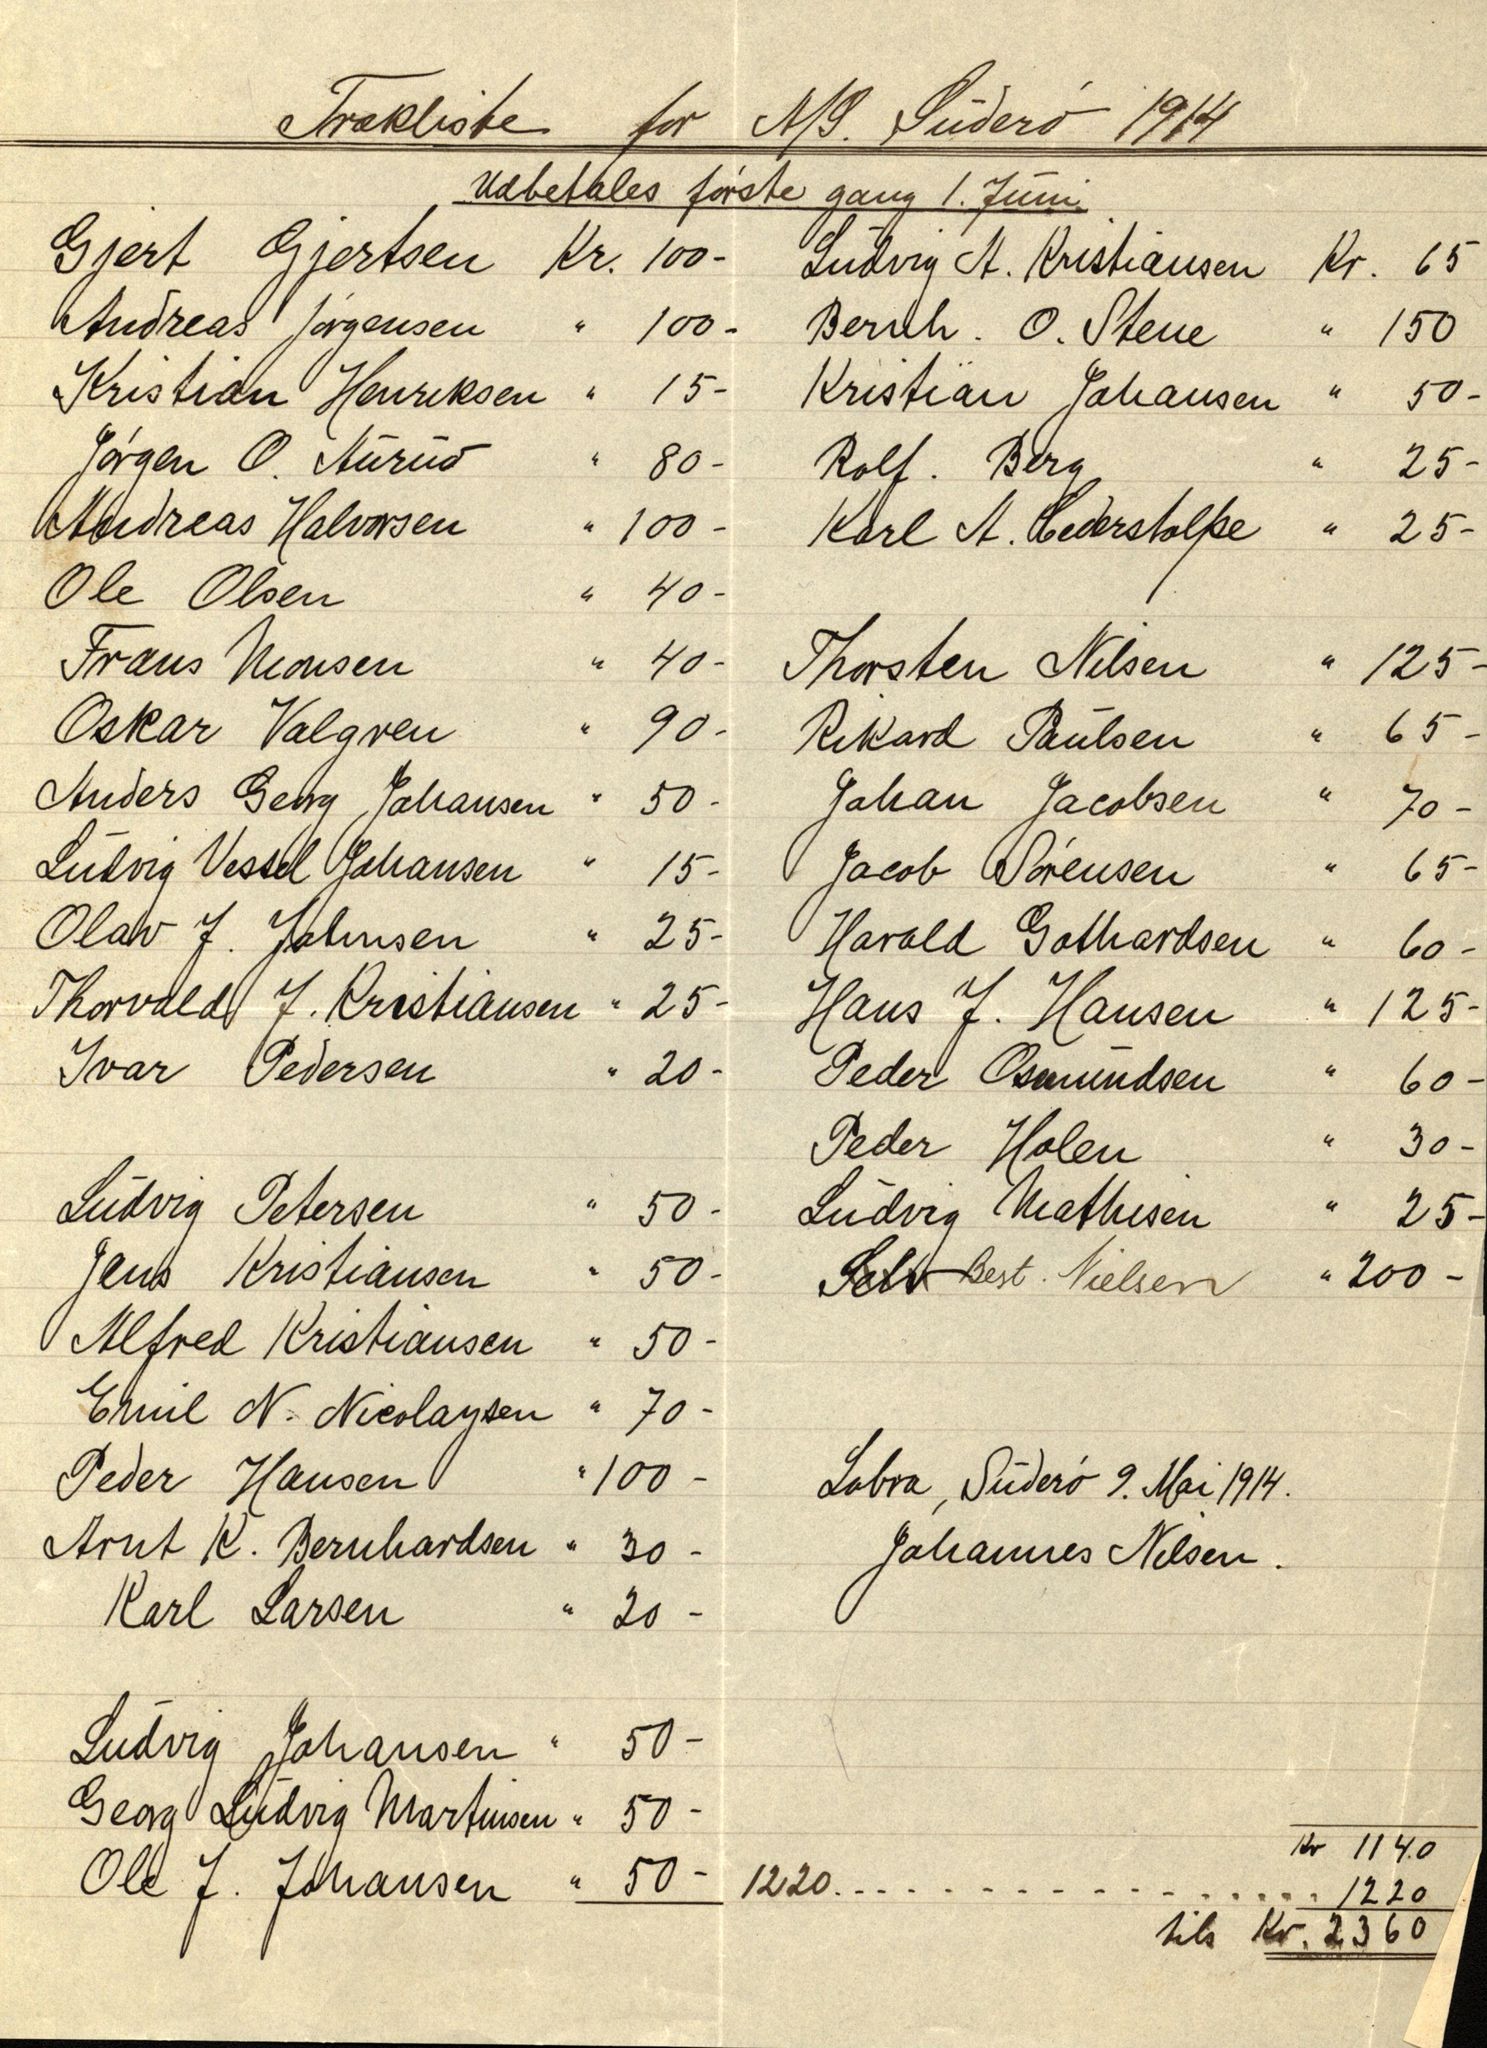 Trækliste for A/S. Süderö 1914
Udbetales første gang 1. Juni.
Gjert Gjertsen Kr. 100-
Andreas Jørgensen " 100-
Kristian Henriksen " 15-
Jørgen O. Aurud " 80-
Andreas Halvorsen " 100-
Ole Olsen " 40-
Frans Monsen " 40-
Oskar Valgren " 90-
Anders Georg Johansen " 50-
Ludvig Vessel Johansen " 15-
Olav J. Johnsen " 25-
Thorvald J. Kristiansen " 25-
Ivar Pedersen " 20-
Ludvig Petersen " 50-
Jens Kristiansen " 50-
Alfred Kristiansen " 50-
Emil N. Nicolaysen " 70-
Peder Hansen " 100-
Arnt K. Bernhardsen " 30-
Karl Larsen " 20-
Ludvig Johansen " 50-
Georg Ludvig Martinsen " 50-
Ole J. Johansen " 50-
Ludvig A. Kristiansen Kr. 65
Bernh. O. Stene " 150
Kristian Johansen " 50-
Rolf. Berg " 25-
Karl A. Cederstolpe " 25-
Thorsten Nilsen " 125-
Rikard Paulsen " 65-
Johan Jacobsen " 70-
Jacob Sørensen " 65-
Harald Gothardsen " 60-
Hans J. Hansen " 125-
Peder Osmundsen " 60-
Peder Holen " 30-
Ludvig Mathisen " 25-
Selv Best. Nielsen " 200-
Lobra, Süderö 9. Mai 1914.
Johannes Nilsen.
Kr 1140
1220. . . . . . . . . . . . . . . . . 1220
tils Kr. 2360